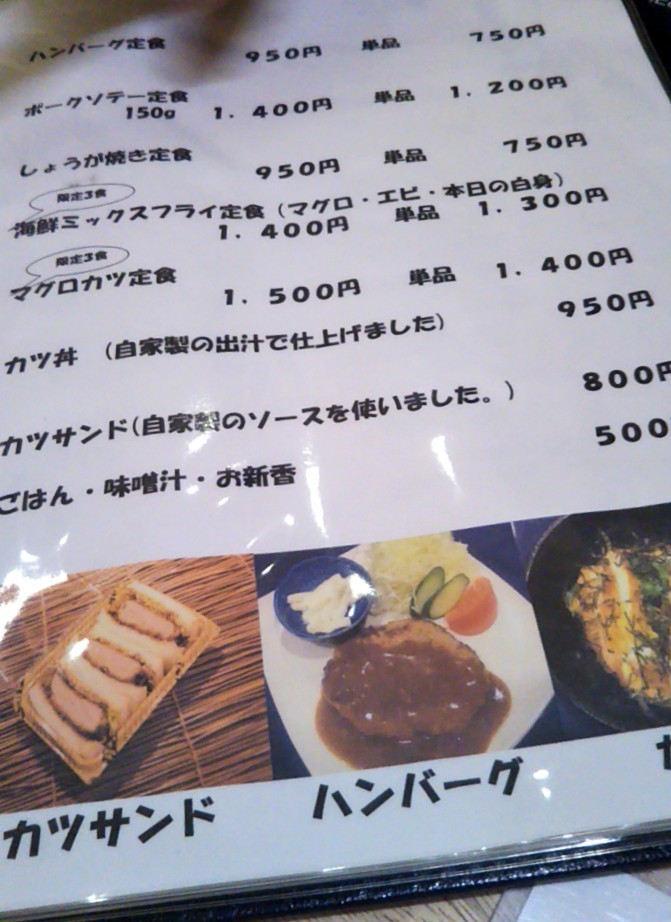 ハンバーグ定食 950円 単品 750円
ポークソテー定食 1.400円 単品 1.200円
150g
しょうが焼き定食 950円 単品 750円
限定3食
海鮮ミックスフライ定食(マグロ・エビ・本日の白身)
1.400円 単品 1.300円
限定3食
マグロカツ定食 1.500円 単品 1.400円
カツ丼 (自家製の出汁で仕上げました) 950円
カツサンド(自家製のソースを使いました。) 800円
ごはん・味噌汁・お新香 500
カツサンド ハンバーグ